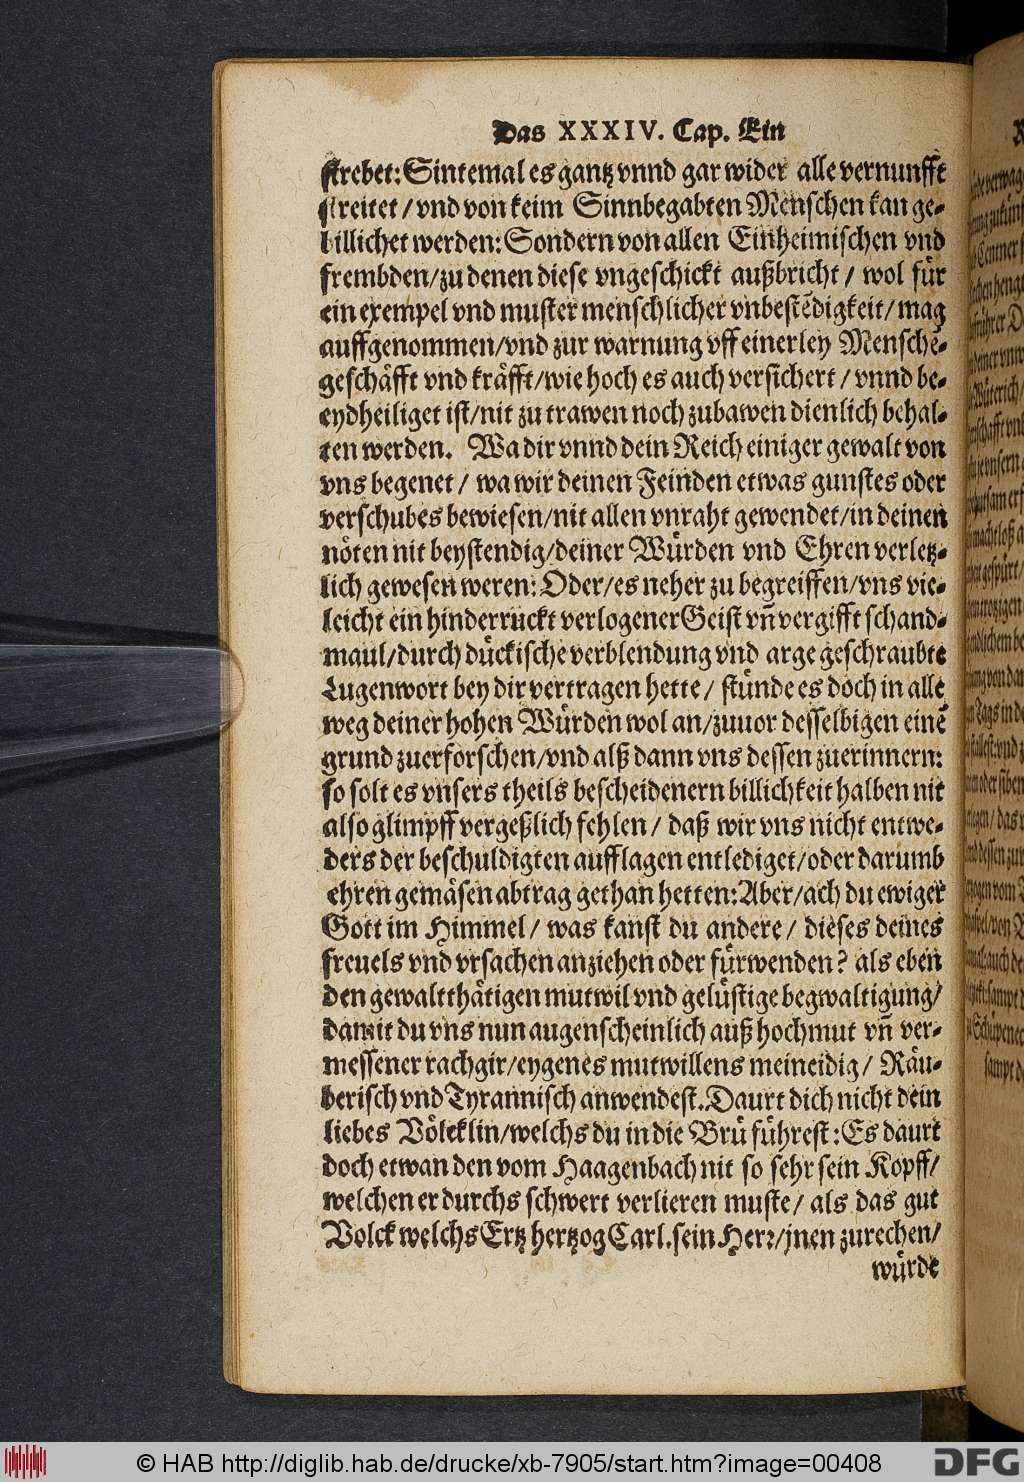 Das XXXIV. Cap. Ein
strebet: Sintemal es gantz vnnd gar wider alle vernunfft
streitet / vnd von keim Sinnbegabten Menschen kan ge-
billichet werden: Sondern von allen Einheimischen vnd
frembden / zu denen diese vngeschickt außbricht / wol für
ein exempel vnd muster menschlicher vnbestēdigkeit / mag
auffgenommen / vnd zur warnung vff einerley Menschē-
geschäfft vnd kräfft / wie hoch es auch versichert / vnnd be-
eydheiliget ist / nit zu trawen noch zubawen dienlich behal-
ten werden. Wa dir vnnd dein Reich einiger gewalt von
vns begenet / wa wir deinen Feinden etwas gunstes oder
verschubes bewiesen / nit allen vnraht gewendet / in deinen
nöten nit beystendig / deiner Würden vnd Ehren verletz-
lich gewesen weren: Oder / es neher zu begreiffen / vns vie-
leicht ein hinderruckt verlogener Geist vn̄ vergifft schand-
maul / durch dückische verblendung vnd arge geschraubte
Lugenwort bey dir vertragen hette / stünde es doch in alle
weg deiner hohen Würden wol an / zuuor desselbigen einē
grund zuerforschen / vnd alß dann vns dessen zuerinnern:
so solt es vnsers theils bescheidenern billichkeit halben nit
also glimpff vergeßlich fehlen / daß wir vns nicht entwe-
ders der beschuldigten aufflagen entlediget / oder darumb
ehren gemäsen abtrag gethan hetten: Aber / ach du ewiger
Gott im Himmel / was kanst du andere / dieses deines
freuels vnd vrsachen anziehen oder fürwenden? als eben
den gewaltthätigen mutwil vnd gelüstige begwaltigung /
damit du vns nun augenscheinlich auß hochmut vn̄ ver-
messener rachgir / eygenes mutwillens meineidig / Räu-
berisch vnd Tyrannisch anwendest. Daurt dich nicht dein
liebes Völcklin / welchs du in die Brü führest: Es daurt
doch etwan den vom Haagenbach nit so sehr sein Kopff /
welchen er durchs schwert verlieren muste / als das gut
Volck welchs Ertzhertzog Carl. sein Herr / jnen zurechen /
würde
© HAB http://diglib.hab.de/drucke/xb-7905/start.htm?image=00408
DFG